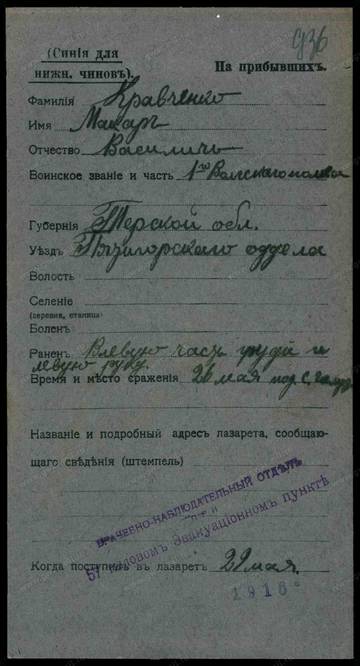 936
(Синія для
нижн. чиновъ).
На прибывшихъ.
Фамилія Кравченко
Имя Макаръ
Отчество Василичъ
Воинское званіе и часть 1го Волгскаго полка
Губернія Терской обл.
Уѣздъ Пятигорскаго оддела
Волость
Селеніе
(деревня, станица)
Боленъ
Раненъ В левую часть груди и
левую руку.
Время и мѣсто сраженія 26 мая под с.
Названіе и подробный адресъ лазарета, сообщаю-
щаго свѣдѣнія (штемпель)
ВРАЧЕБНО-НАБЛЮДАТЕЛЬНЫЙ ОТДѢЛЪ
57 головном Эвакуаціонномъ пунктѣ
Когда поступилъ въ лазаретъ 29 мая.
1916